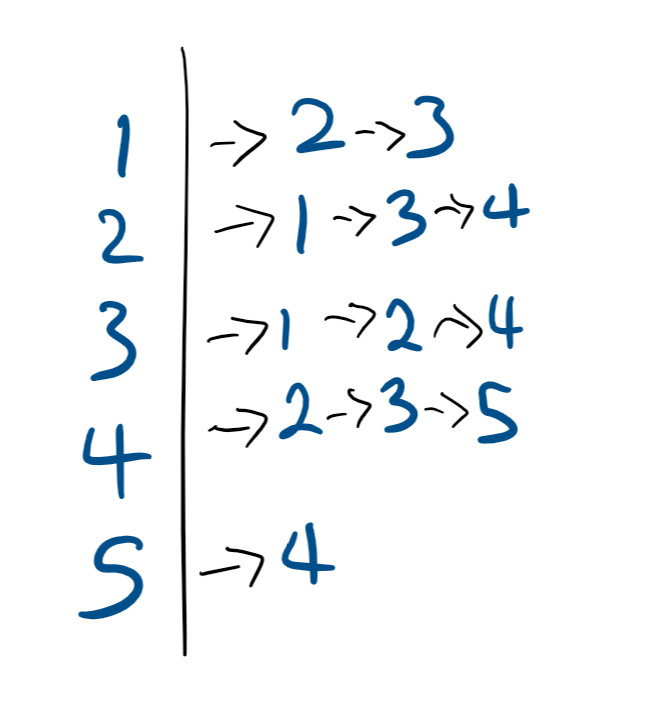 1 | → 2 → 3
2 | → 1 → 3 → 4
3 | → 1 → 2 → 4
4 | → 2 → 3 → 5
5 | → 4